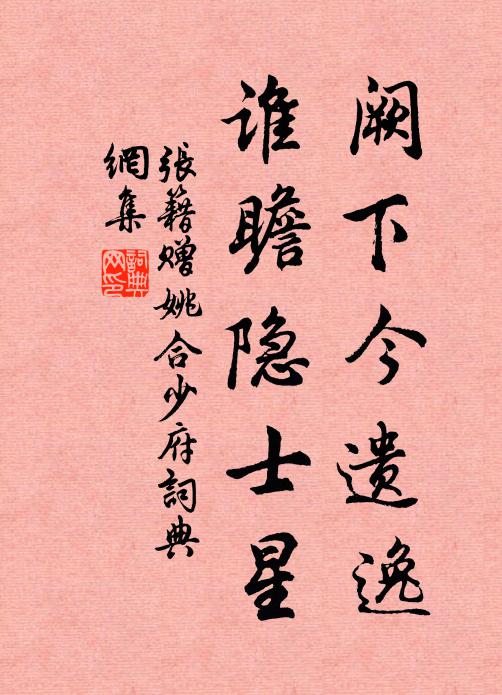 阙下今遗逸
谁瞻隐士星
張籍赠姚合少府詞典
網集
詞典
网印